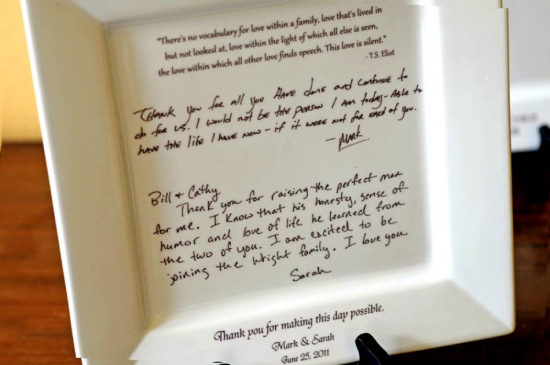 "There's no vocabulary for love within a family, love that's lived in
but not looked at, love within the light of which all else is seen,
the love within which all other love finds speech. This love is silent."
- T.S. Eliot
Thank you for all you have done and continue to
do for us. I would not be the person I am today - able to
have the life I have now - if it were not for each of you.
- Mark
Bill & Cathy
Thank you for raising the perfect man
for me. I know that his honesty, sense of
humor and love of life he learned from
the two of you. I am excited to be
joining the Wright family. I love you.
Sarah
Thank you for making this day possible.
Mark & Sarah
June 25, 2011